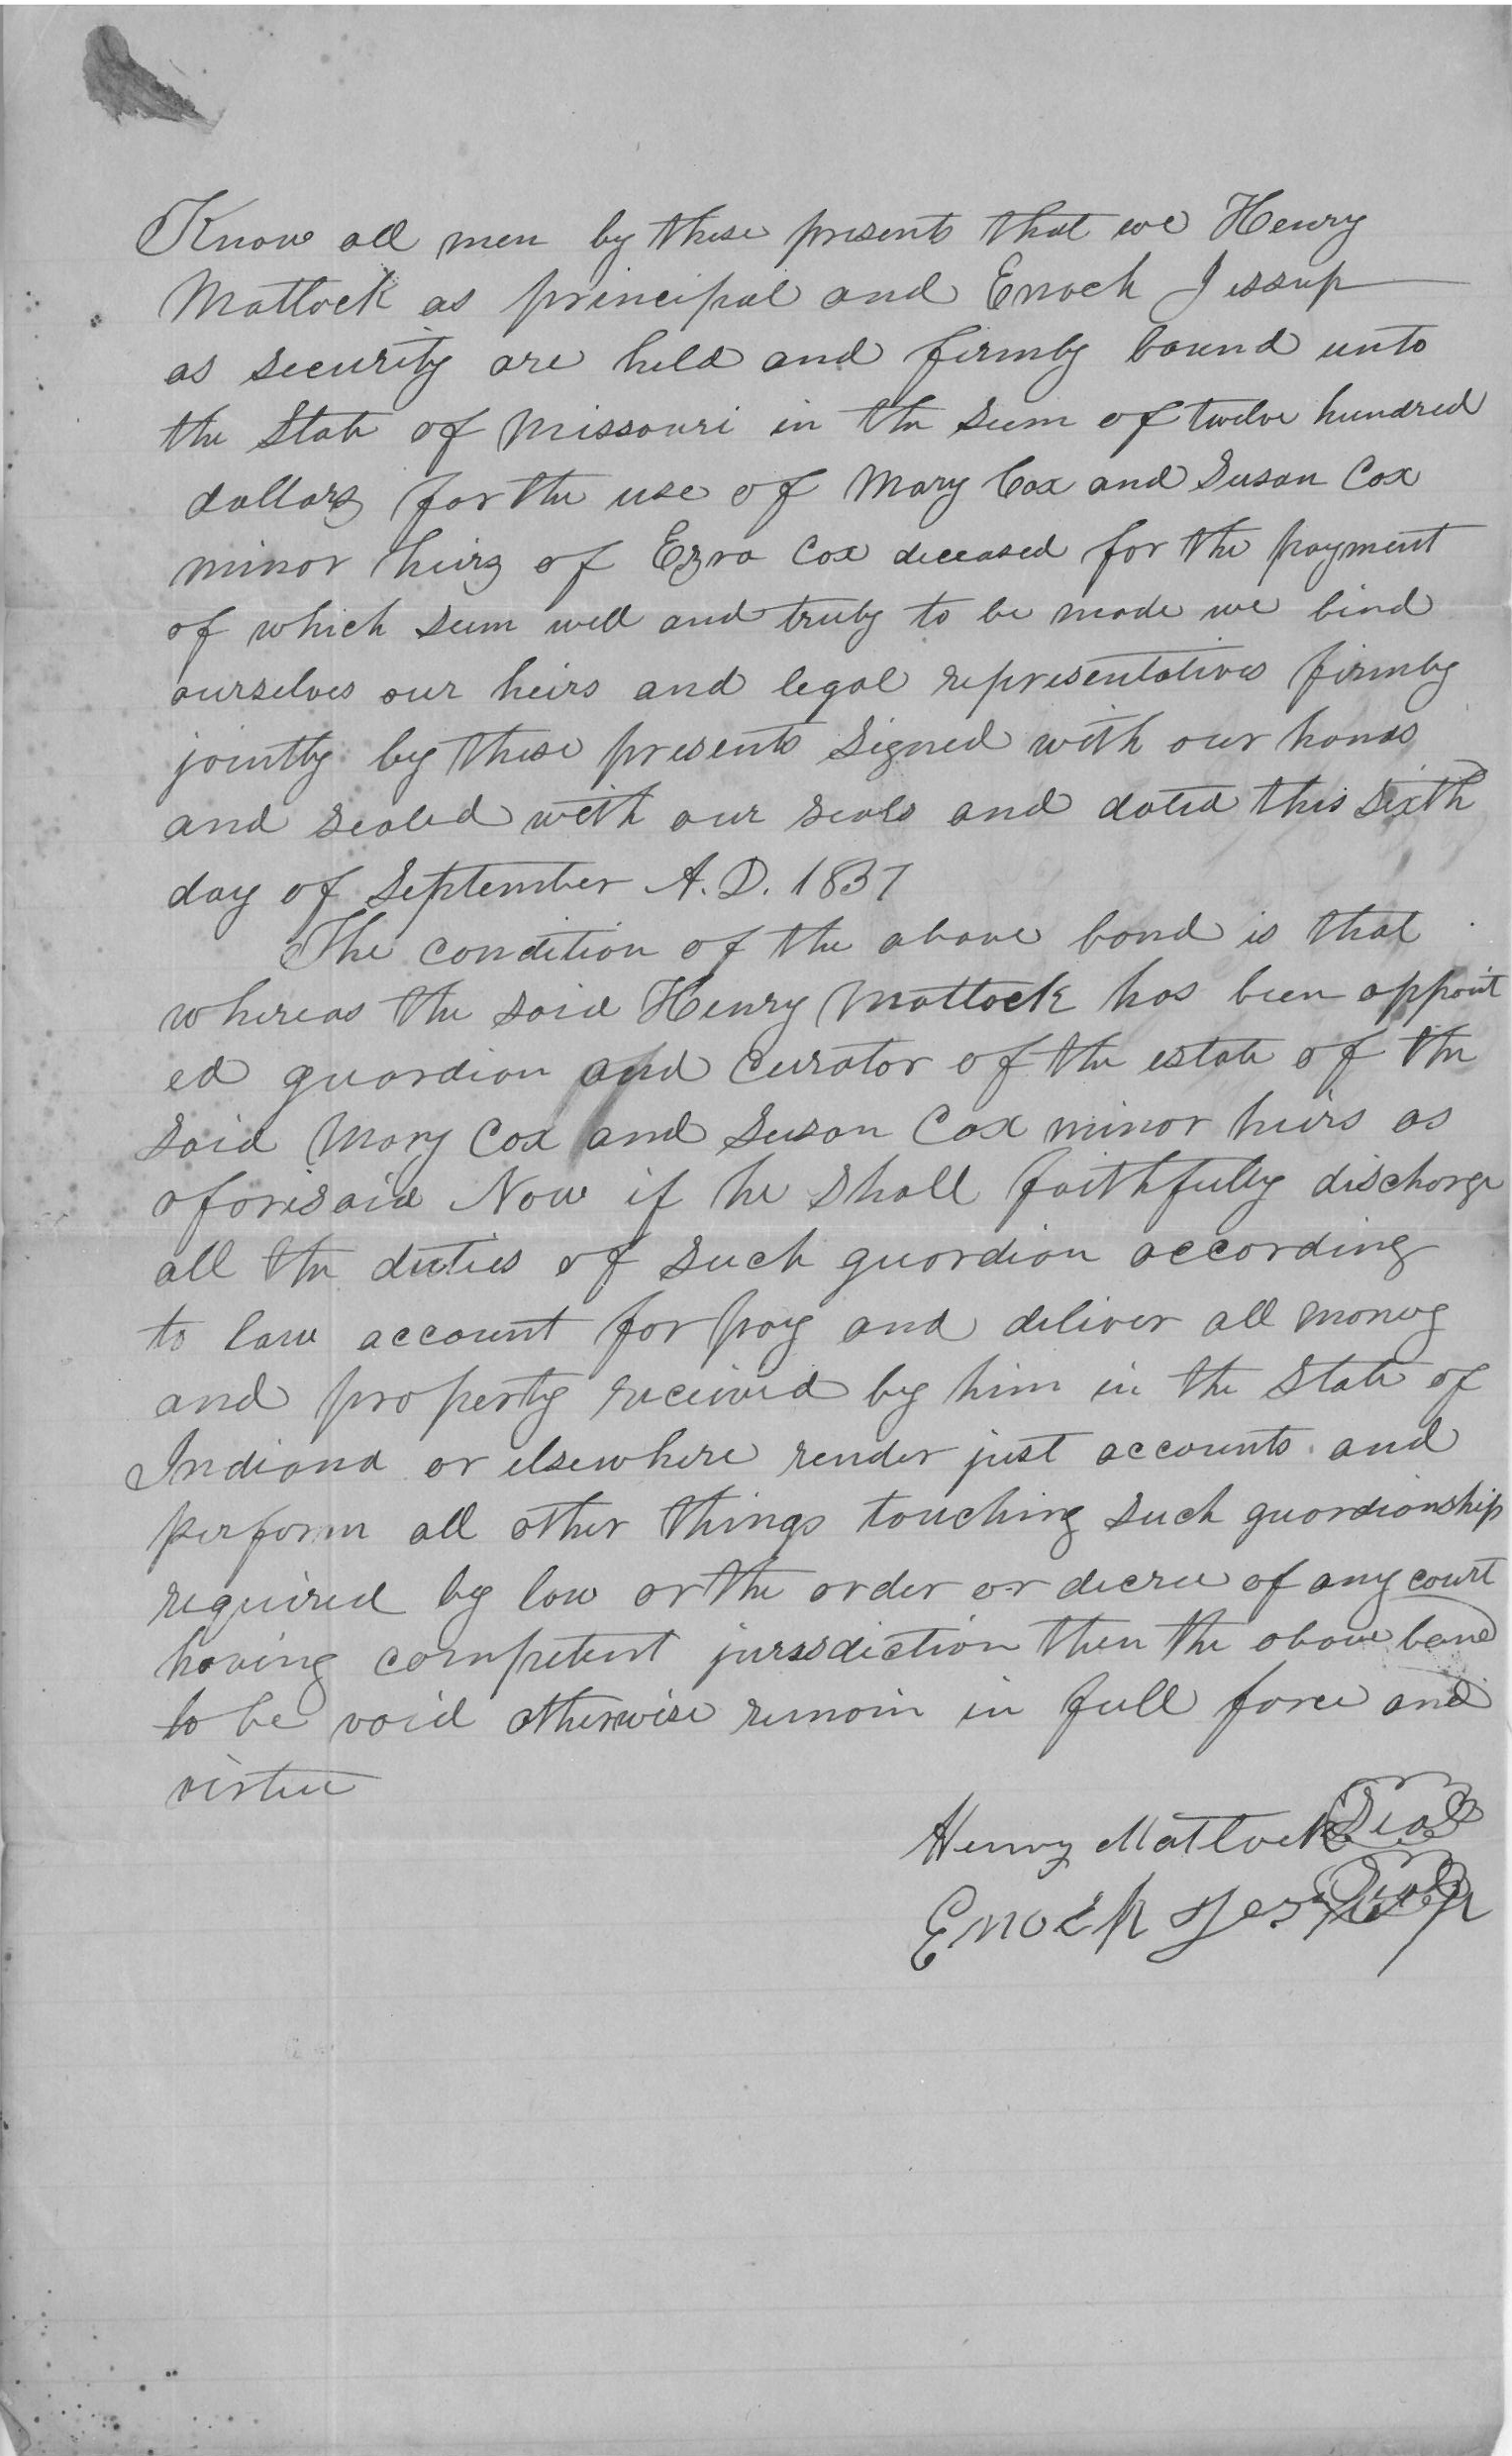 Know all men by these presents that we Henry
Matlock as principal and Enoch Jessup
as security are held and firmly bound unto
the State of Missouri in the sum of twelve hundred
dollars for the use of Mary Cox and Susan Cox
minor heirs of Ezra Cox deceased for the payment
of which sum well and truly to be made we bind
ourselves our heirs and legal representatives firmly
jointly by these presents Signed with our hands
and sealed with our seals and dated this Sixth
day of September A.D. 1837
The condition of the above bond is that
whereas the said Henry Matlock has been appoint
ed guardian and curator of the estate of the
said Mary Cox and Susan Cox minor heirs as
aforesaid Now if he shall faithfully discharge
all the duties of such guardian according
to law account for pay and deliver all money
and property received by him in the State of
Indiana or elsewhere render just accounts and
perform all other things touching such guardianship
required by law or the order or decree of any court
having competent jursdiction then the above bond
to be void otherwise remain in full force and
virtue
Henry Matlock Seal
Enoch Jessup Seal